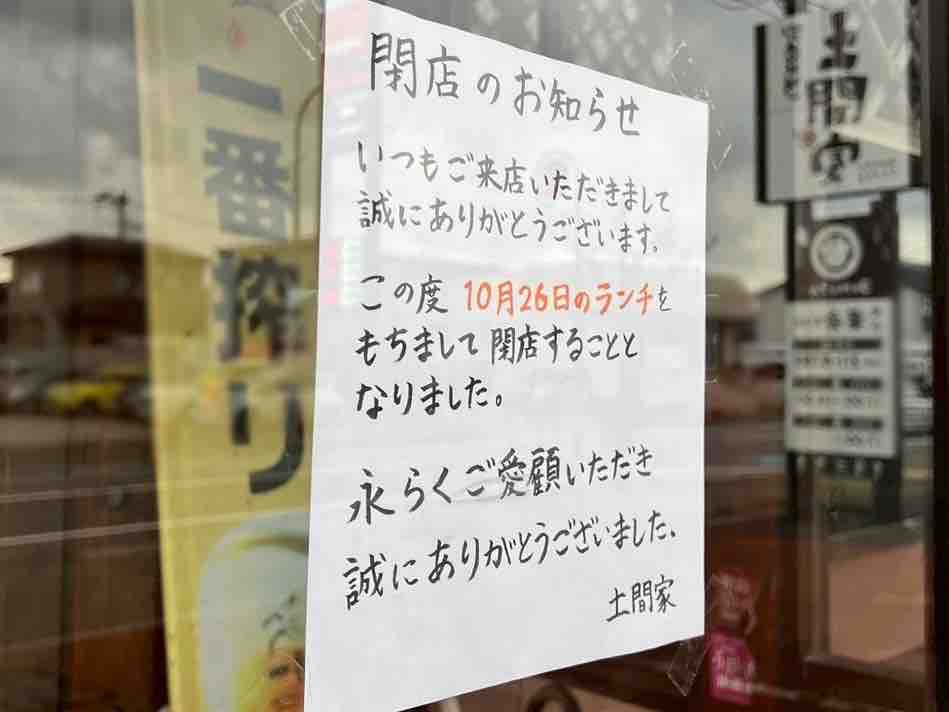 閉店のお知らせ
いつもご来店いただきまして
誠にありがとうございます。
この度 10月26日のランチを
もちまして閉店することと
なりました。
永らくご愛顧いただき
誠にありがとうございました、
土間家
一番搾り
土間家